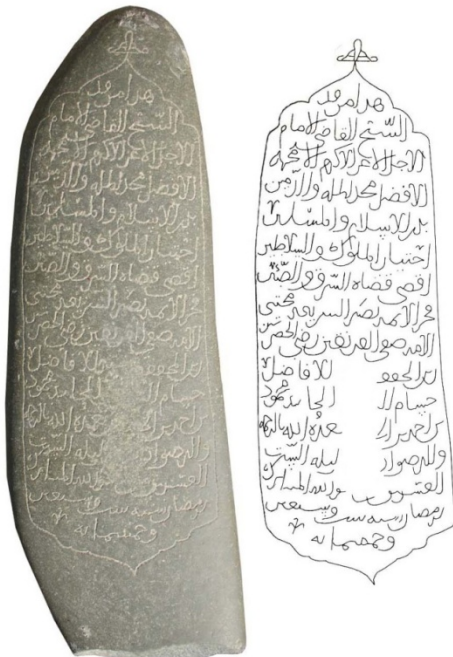 هذا مرقد
الشيخ القاضي الامام
الاجل الاعز الاكرم الامجد
الافضل مجد الملة والدين
بدر الاسلام والمسلمين
اختيار الملوك والسلاطين
اقضى قضاة الشرق والصين
فخر الائمة نصر الشريعة مجتبى
الائمة صفي الفريقين رضي الحضرتين
الافاضل
حسام محمود
بن احمد الله بالرحمة
والرضوان ليلة السبت
العشرون المبارك
رمضان سنة ست وسبعين
وخمسمائة